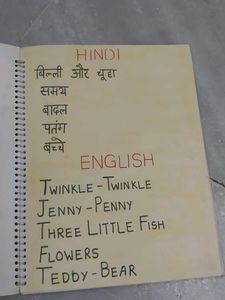 HINDI
बिल्ली और चूहा
समय
बादल
पतंग
बच्चे
ENGLISH
TWINKLE-TWINKLE
JENNY-PENNY
THREE LITTLE FISH
FLOWERS
TEDDY-BEAR